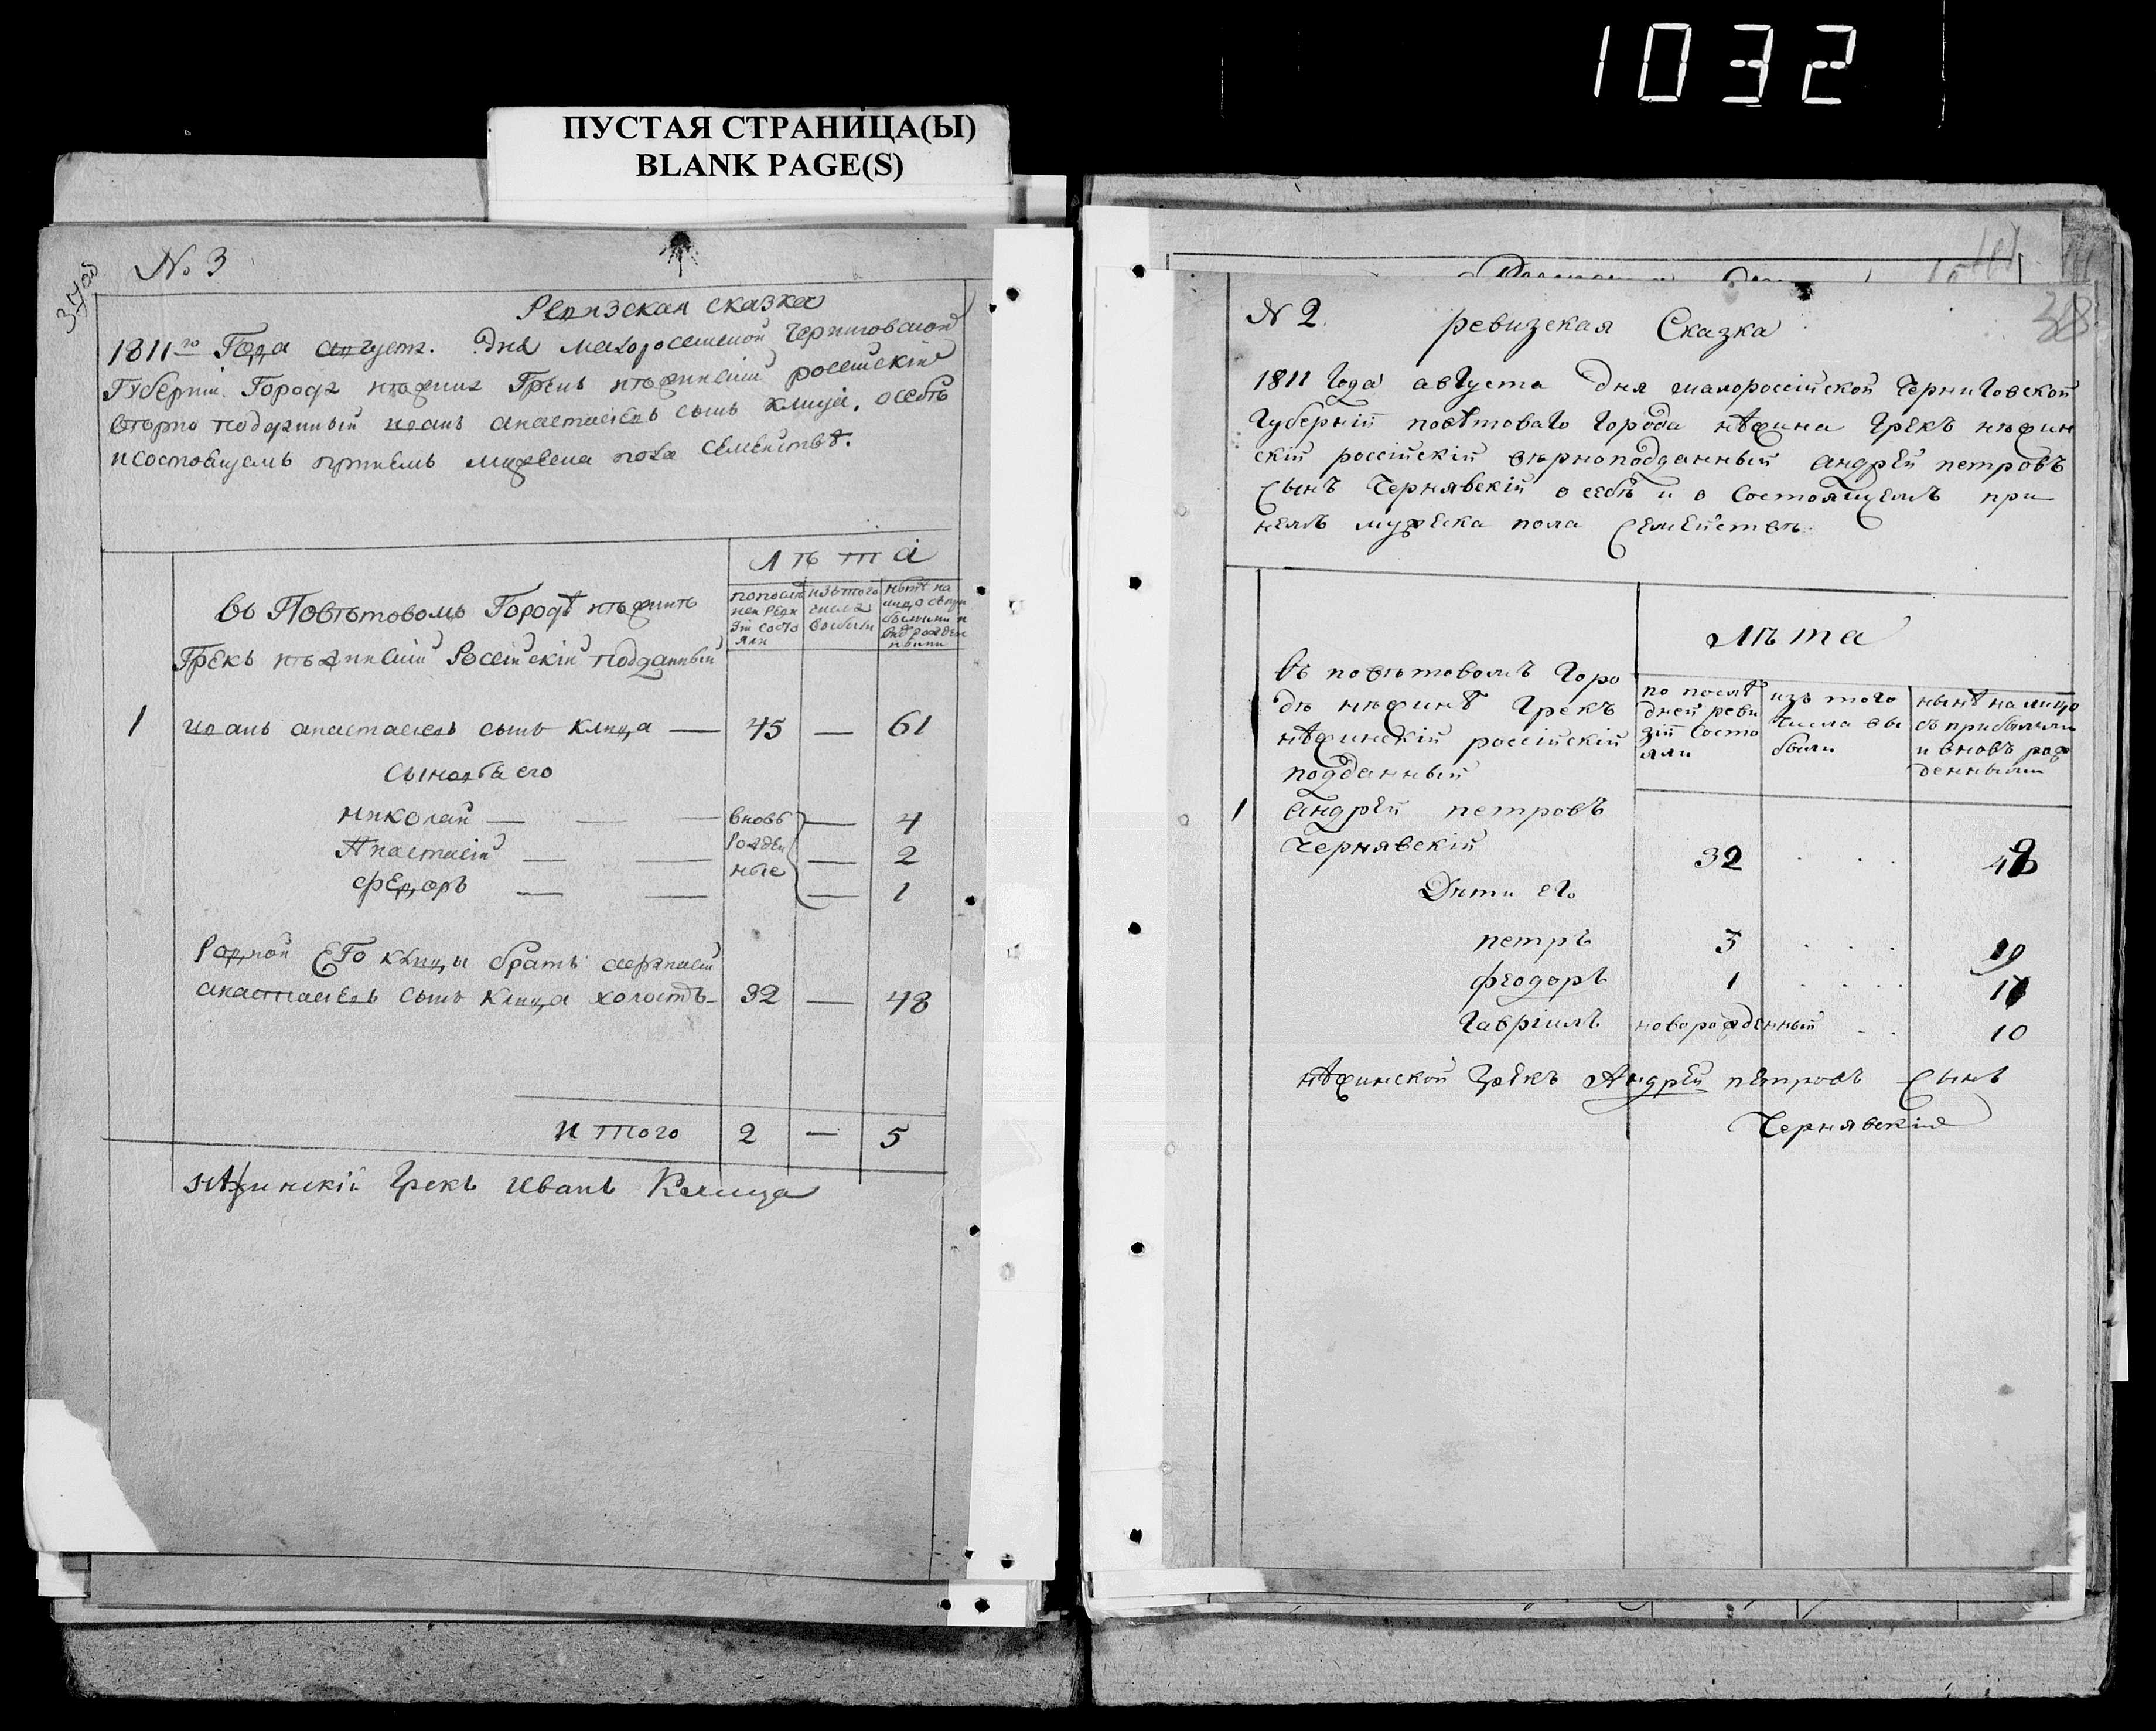 1032
ПУСТАЯ СТРАНИЦА(Ы)
BLANK PAGE(S)
№ 3
Ревизская сказка
1811го Года август. Дня малоросийской Черниговской
Губерніи Города нѣжина Грекъ нѣжинскій россійскій
вѣрно подданный иванъ анастасіевъ сынъ клица, о себѣ
и состоящемъ принемъ мужеска пола семействѣ.
Лѣта
въ Повѣтовомъ Городѣ нѣжинѣ
Грекъ нѣжинскій Россійскій подданный
по послѣд
ней Реви
зіи состо
яли
изъ того
числа
выбыли
нынѣ на
лицо съ при
былыми и
вновь рожден
ными
1 иванъ анастасіевъ сынъ клица — 45 — 61
Сыновья его
николай — — — вновь — 4
Анастасій — — Рожден — 2
федоръ — — ные — 1
Родной Его клицы братъ
анастасіевъ сынъ клица холостъ — 32 — 48
Итого 2 — 5
нѣжинскій Грекъ Иванъ Клица
38
№ 2.
ревизская Сказка
1811 Года августа дня малороссійской Черниговской
Губерніи повѣтоваго Города нѣжина Грекъ нѣжин
скій россійскій вѣрноподданный андрей петровъ
Сынъ Чернявскій о себѣ и о Состоящемъ при
немъ мужеска пола Семействѣ.
Лѣта
въ повѣтовомъ Горо
дѣ нѣжинѣ Грекъ
нѣжинскій россійскій
подданный
по послѣ
дней реви
зіи состо
яли
изъ того
числа вы
были
нынѣ на лицо
съ прибылыми
и вновь рож
денными
1 андрей петровъ
Чернявскій 32 . . . 48
Дѣти его
петръ 3 . . . 19
феодоръ 1 . . . . 17
Гавріилъ новорожденный . . 10
нѣжинской Грекъ Андрей петровъ Сынъ
Чернявскій